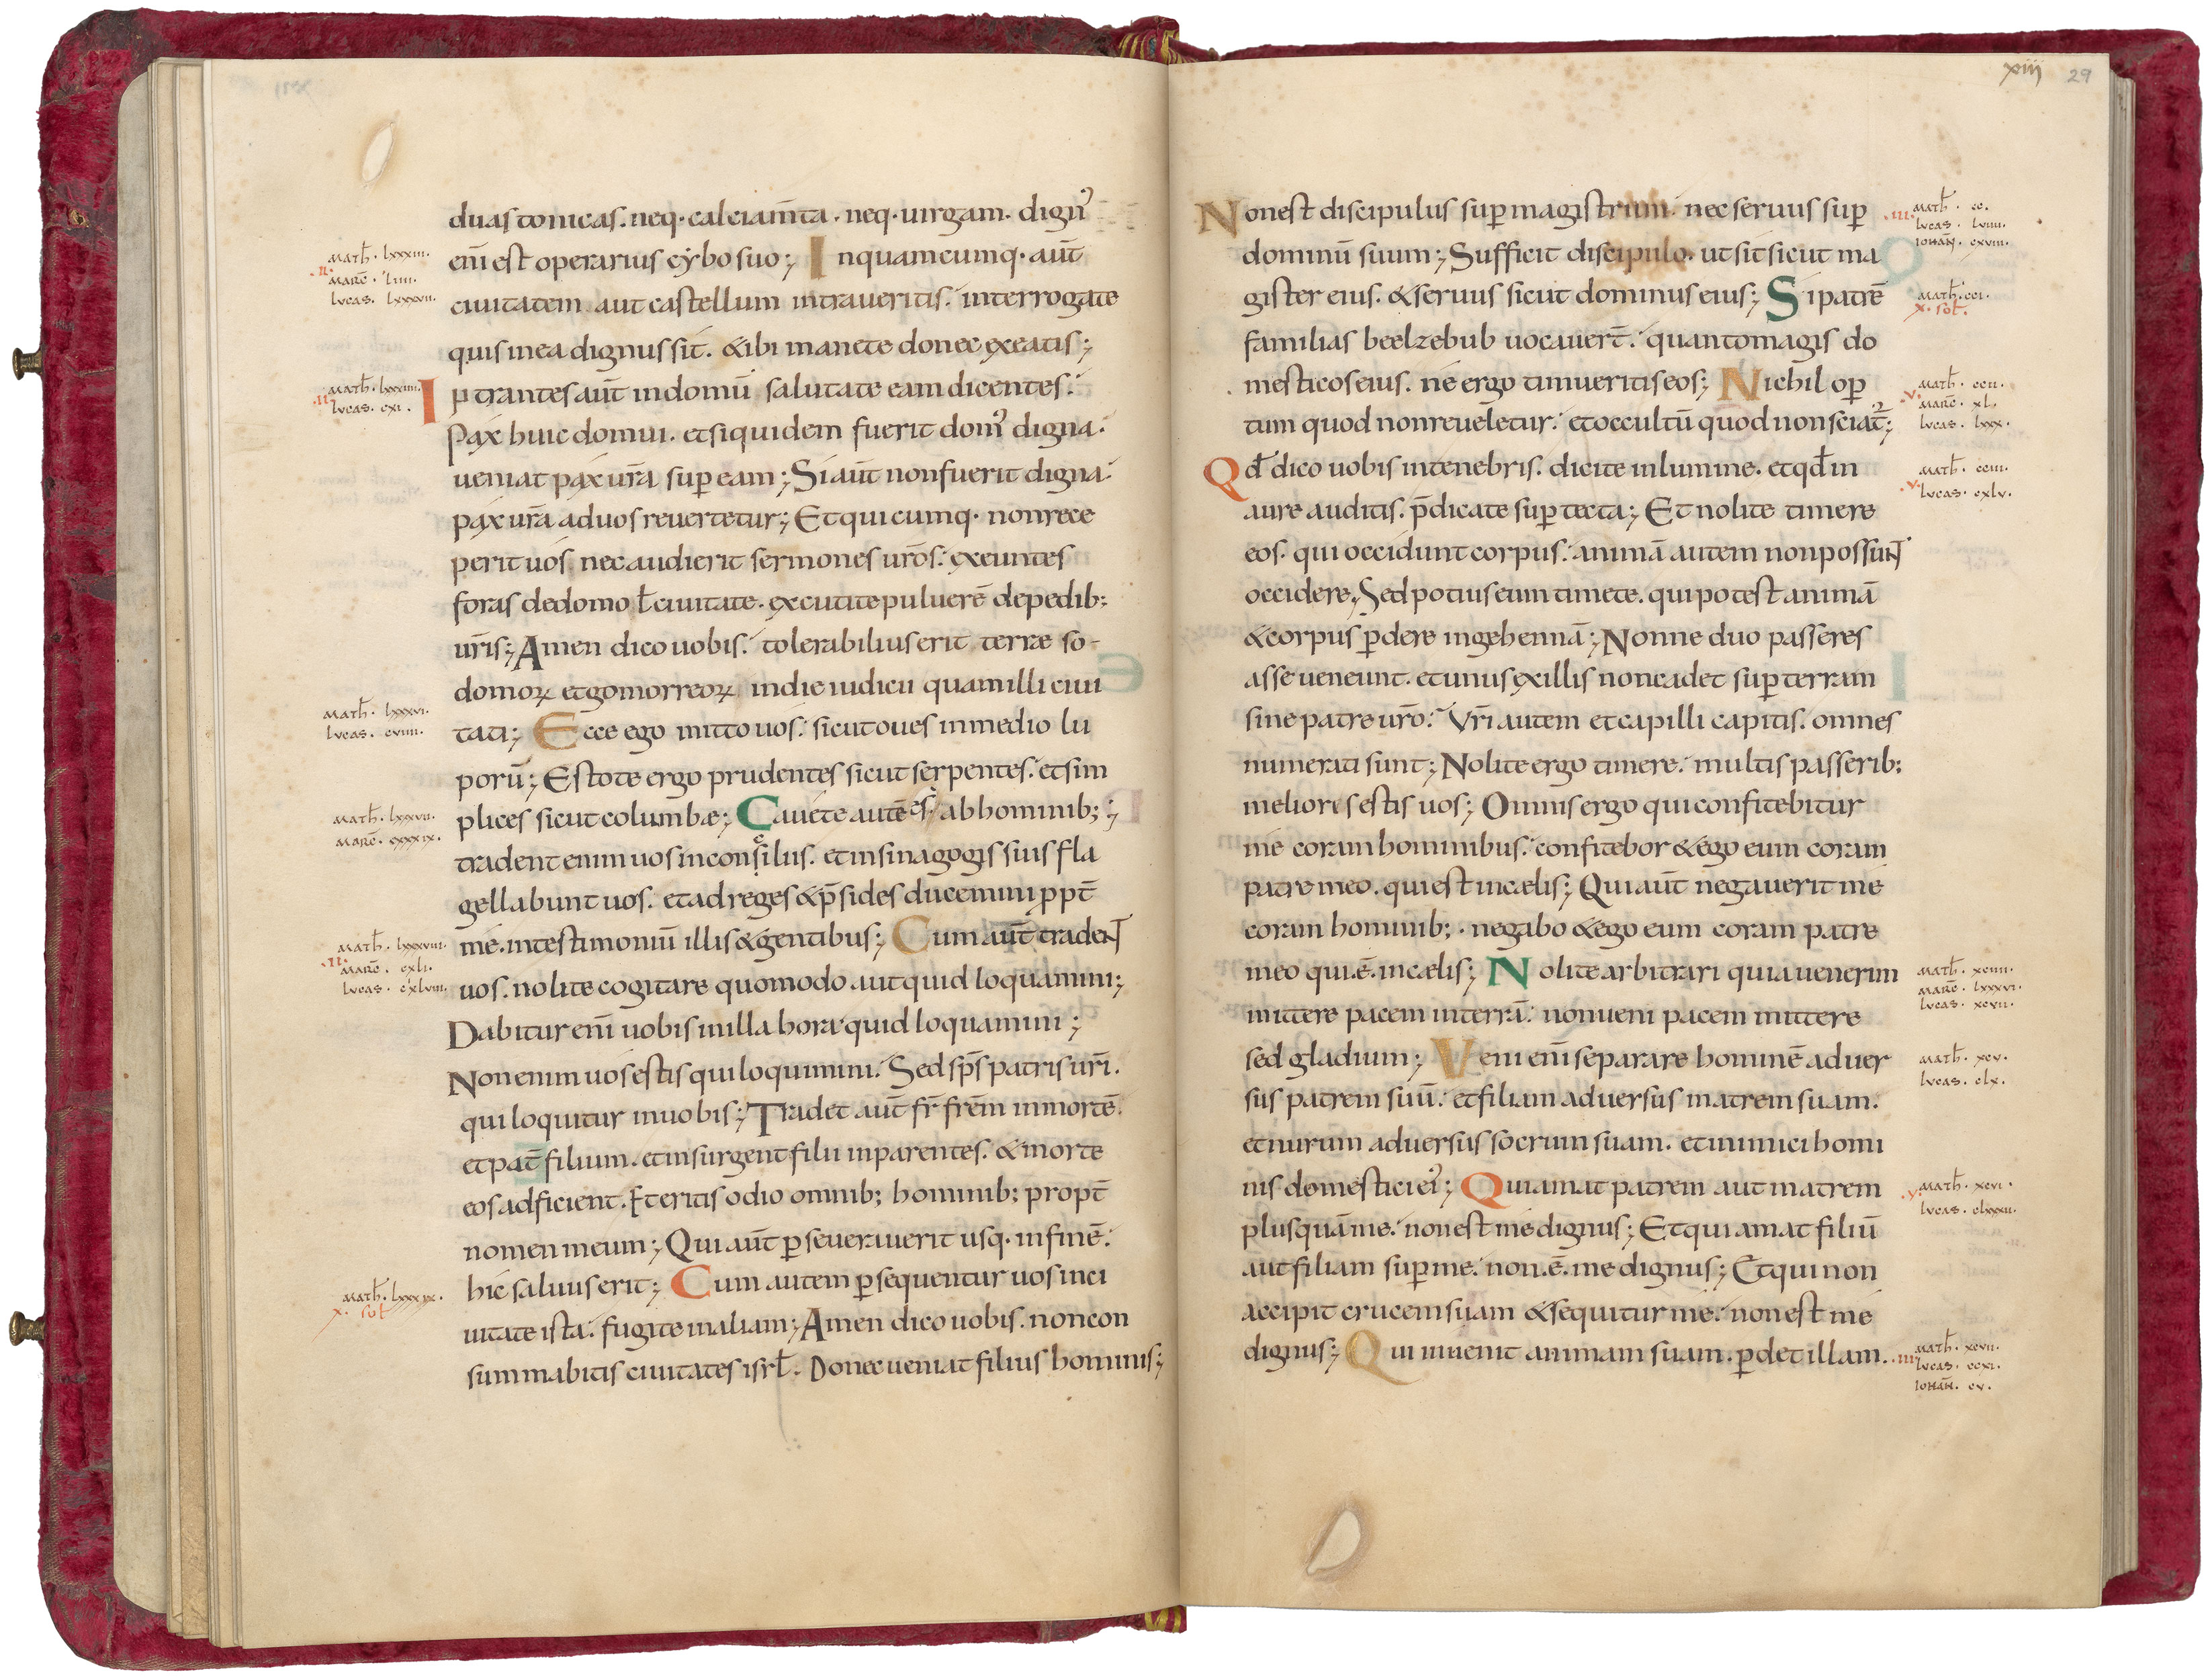 duas tonicas. neq· calciam̄ta. neq· uirgam. dignꝰ
eni᷑ est operarius cẏbo suo; Inquamcumq· aut̄
ciuitatem aut castellum intraueritis. interrogate
quis in ea dignus sit. & ibi manete donec exeatis;
Intrantes aut̄ in domū salutate eam dicentes.
Pax huic domui. et siquidem fuerit domꝰ digna.
ueniat pax ur̄a sup̱ eam; Si aut̄ non fuerit digna.
pax ur̄a ad uos reuertetur; Et qui cumq· non rece
perit uos nec audierit sermones ur̄os. exeuntes
foras de domo ł ciuitate. excutite puluerē de pedib;
ur̄is; Amen dico uobis. tolerabilius erit terrae so-
domoꝝ et gomorreoꝝ in die iudicii quam illi ciui
tati; Ecce ego mitto uos. sicut oues in medio lu
porū; Estote ergo prudentes sicut serpentes. et sim
plices sicut columbae; Cauete autē ab hominib;;
tradent enim uos in consiliis. et in sinagogis suis fla
gellabunt uos. et ad reges & p̄sides ducemini ppt̄
me. in testimoniū illis & gentibus; Cum aut̄ tradent
uos. nolite cogitare quomodo aut quid loquamini;
Dabitur enī uobis in illa hora quid loquamini;
Non enim uos estis qui loquimini. Sed sp̄s patris ur̄i.
qui loquitur in uobis; Tradet aut̄ fr̄ fr̄em in mortē.
et pat̄ filium. et insurgent filii in parentes. & morte
eos adficient. Et eritis odio omnib; hominib; propt̄
nomen meum; Qui aut̄ p̱seuerauerit usq· in finē.
hic saluus erit; Cum autem p̱sequentur uos in ci
uitate ista. fugite in aliam; Amen dico uobis. non con
summabitis ciuitates isrł. Donec ueniat filius hominis;
math̄. lxxxiii.
.ii.
marc̄. liiii.
lucas. lxxxvii.
math̄. lxxxiiii.
lucas. cxi.
math̄. lxxxvi.
lucas. cviiii.
math̄. lxxxvii.
marc̄. cxxxix.
math̄. lxxxviii.
.ii.
marc̄. cxli.
lucas. cxlviii.
math̄. lxxxix.
x. sol̄
xiij 29
Non est discipulus sup̱ magistrum. nec seruus sup̱
dominū suum; Sufficit discipulo. ut sit sicut ma
gister eius. & seruus sicut dominus eius; Si patrē
familias beelzebub uocauer̄t. quanto magis do
mesticos eius. ne ergo timueritis eos; Nichil op̱
tum quod non reueletur. et occultū quod non sciat᷑;
Qd̄ dico uobis in tenebris. dicite in lumine. et qd̄ in
aure auditis. p̄dicate sup̱ tecta; Et nolite timere
eos. qui occidunt corpus. animā autem non possunt
occidere. Sed potius eum timete. qui potest animā
& corpus p̱dere in gehennā; Nonne duo passeres
asse ueneunt. et unus ex illis non cadet sup̱ terram
sine patre ur̄o. Vr̄i autem et capilli capitis. omnes
numerati sunt; Nolite ergo timere. multis passerib;
melioris estis uos; Omnis ergo qui confitebitur
me coram hominibus. confitebor & ego eum coram
patre meo. qui est in caelis; Qui aut̄ negauerit me
coram hominib;. negabo & ego eum coram patre
meo qui .ē. in caelis; Nolite arbitrari quia uenerim
mittere pacem in terrā. non ueni pacem mittere
sed gladium; Veni enī separare hominē aduer
sus patrem suū. et filiam aduersus matrem suam.
et nurum aduersus socrum suam. et inimici homi
nis domestici eiꝰ; Qui amat patrem aut matrem
plusquā me. non est me dignus; Et qui amat filiū
aut filiam sup̱ me. non .ē. me dignus; Et qui non
accipit crucem suam & sequitur me. non est me
dignus; Qui inuenit animam suam. p̱det illam.
.iii.
math̄. cc.
lucas. lviii.
iohan̄. cxviii.
math̄. cci.
x. sol̄.
math̄. ccii.
.v.
marc̄. xl.
lucas. lxxx.
math̄. cciii.
.v.
lucas. cxlv.
math̄. xciiii.
marc̄. lxxxvi.
lucas. xcvii.
math̄. xcv.
lucas. clx.
math̄. xcvi.
.v.
lucas. clxxxii.
math̄. xcvii.
.iii.
lucas. ccxi.
iohan̄. cv.